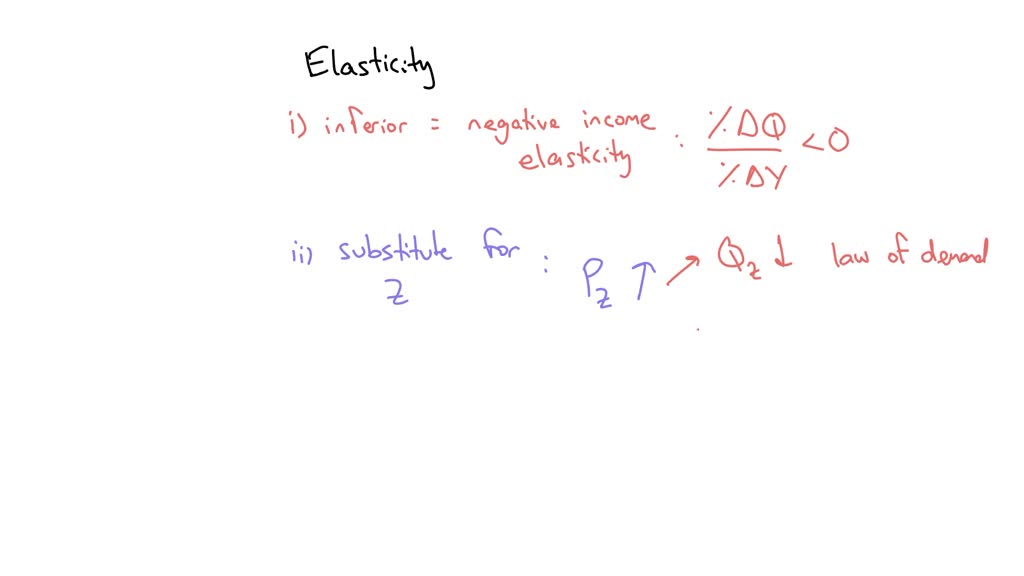 Elasticity
i) inferior = negative income elasticity : %ΔQ / %ΔY < 0
ii) substitute for Z : P_Z ↑ ↗ Q_Z ↓ law of demand